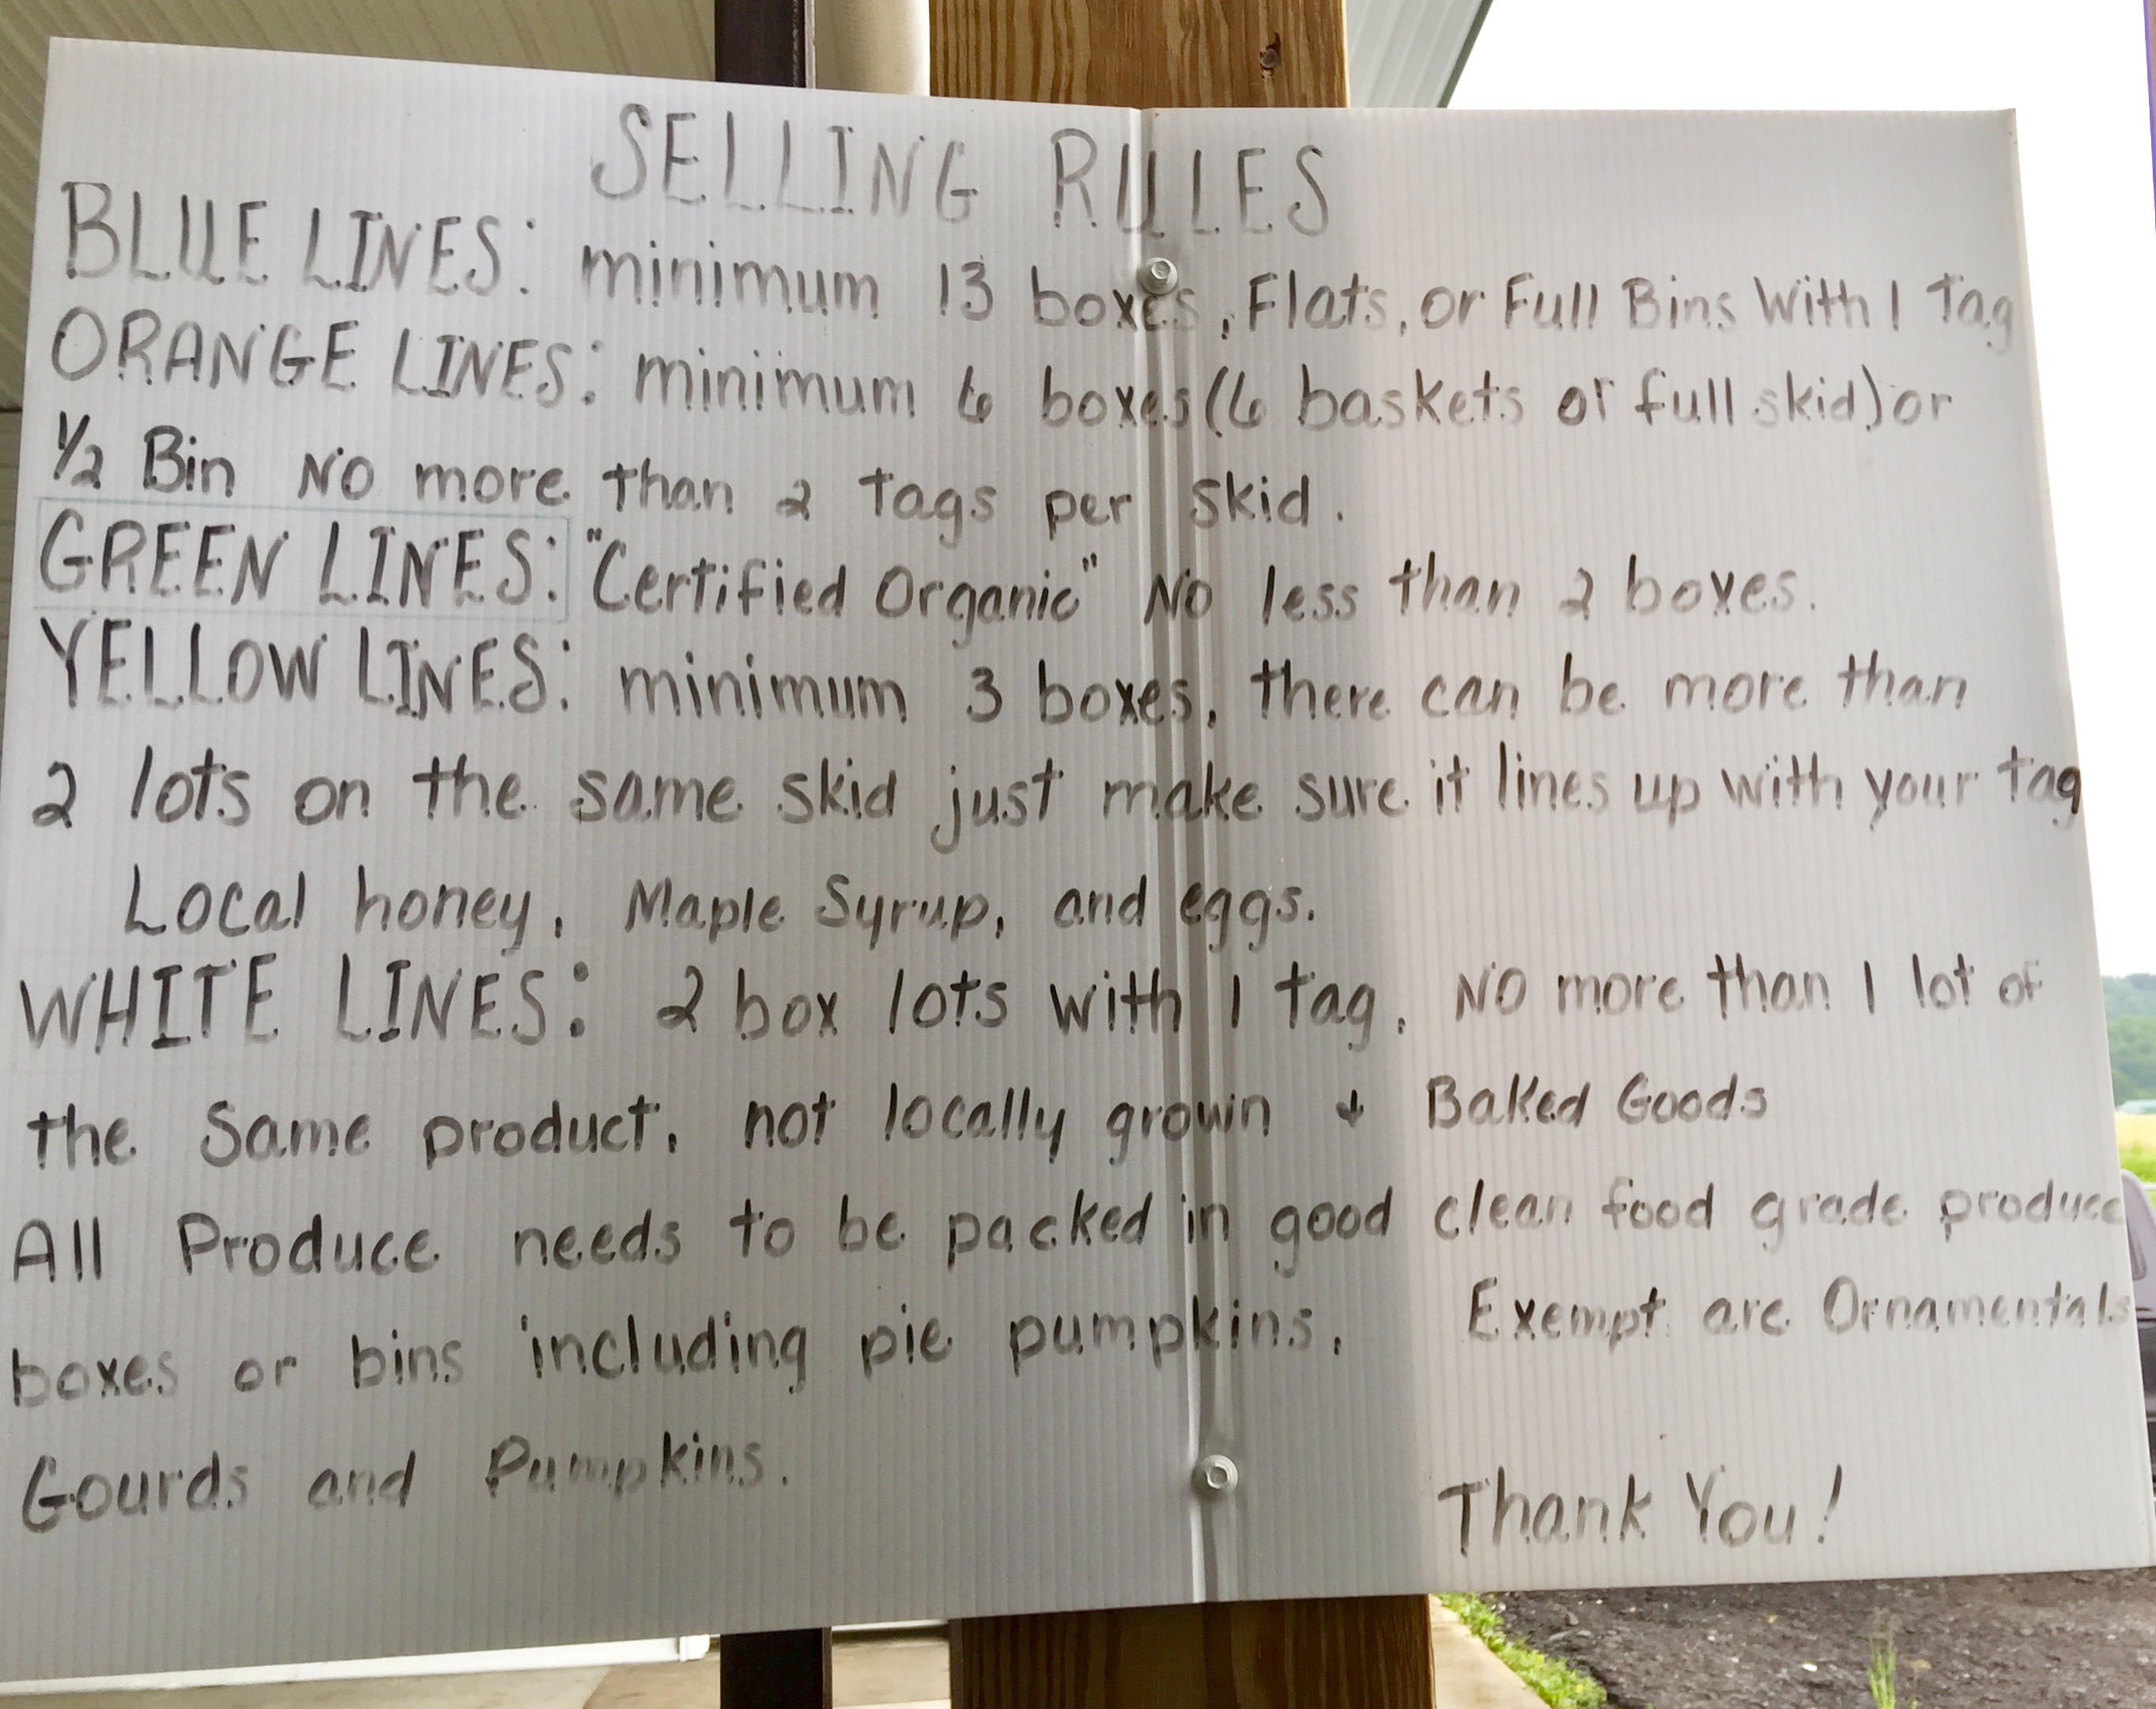 SELLING RULES
BLUE LINES: minimum 13 boxes, Flats, or Full Bins With 1 Tag
ORANGE LINES: minimum 6 boxes (6 baskets or full skid) or
1/2 Bin No more than 2 tags per skid.
GREEN LINES: "Certified Organic" No less than 2 boxes.
YELLOW LINES: minimum 3 boxes, there can be more than
2 lots on the same skid just make sure it lines up with your tag
Local honey, Maple Syrup, and eggs.
WHITE LINES: 2 box lots with 1 tag. No more than 1 lot of
the same product, not locally grown & Baked Goods
All Produce needs to be packed in good clean food grade produce
boxes or bins including pie pumpkins. Exempt are Ornamentals
Gourds and Pumpkins.
Thank You!